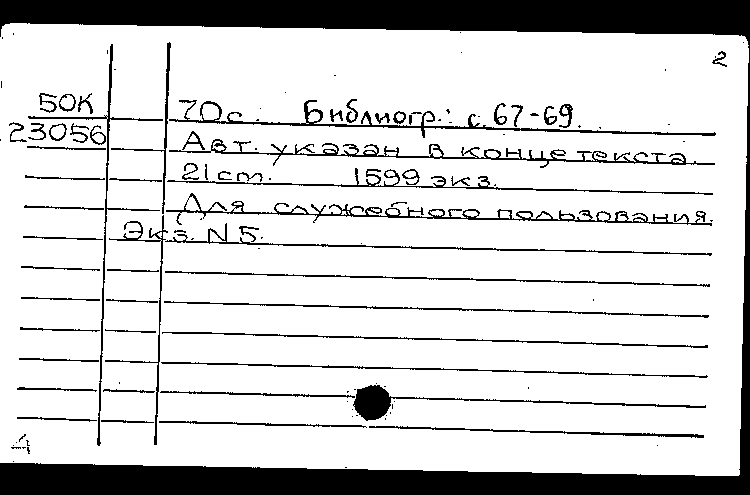 2
50К
70с. Библиогр.: с.67-69.
23056
Авт. указан в конце текста.
21 cm. 1599 экз.
Для служебного пользования.
Экз. N 5.